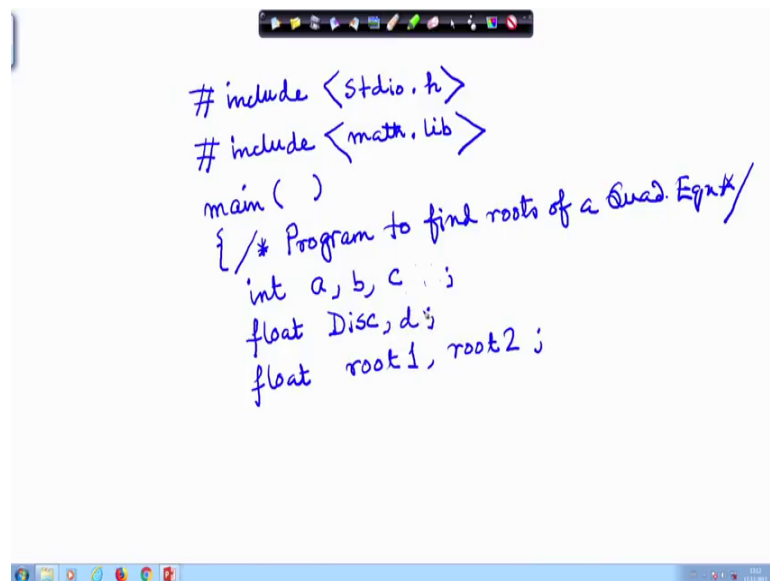 #include <stdio.h>
#include <math.lib>
main( )
{ /* Program to find roots of a Quad. Eqn*/
int a, b, c ;
float Disc, d;
float root1, root2 ;